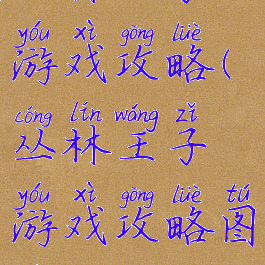 yóu xì gōng lüè
游戏攻略(
cóng lín wáng zǐ
丛林王子
yóu xì gōng lüè tú
游戏攻略图